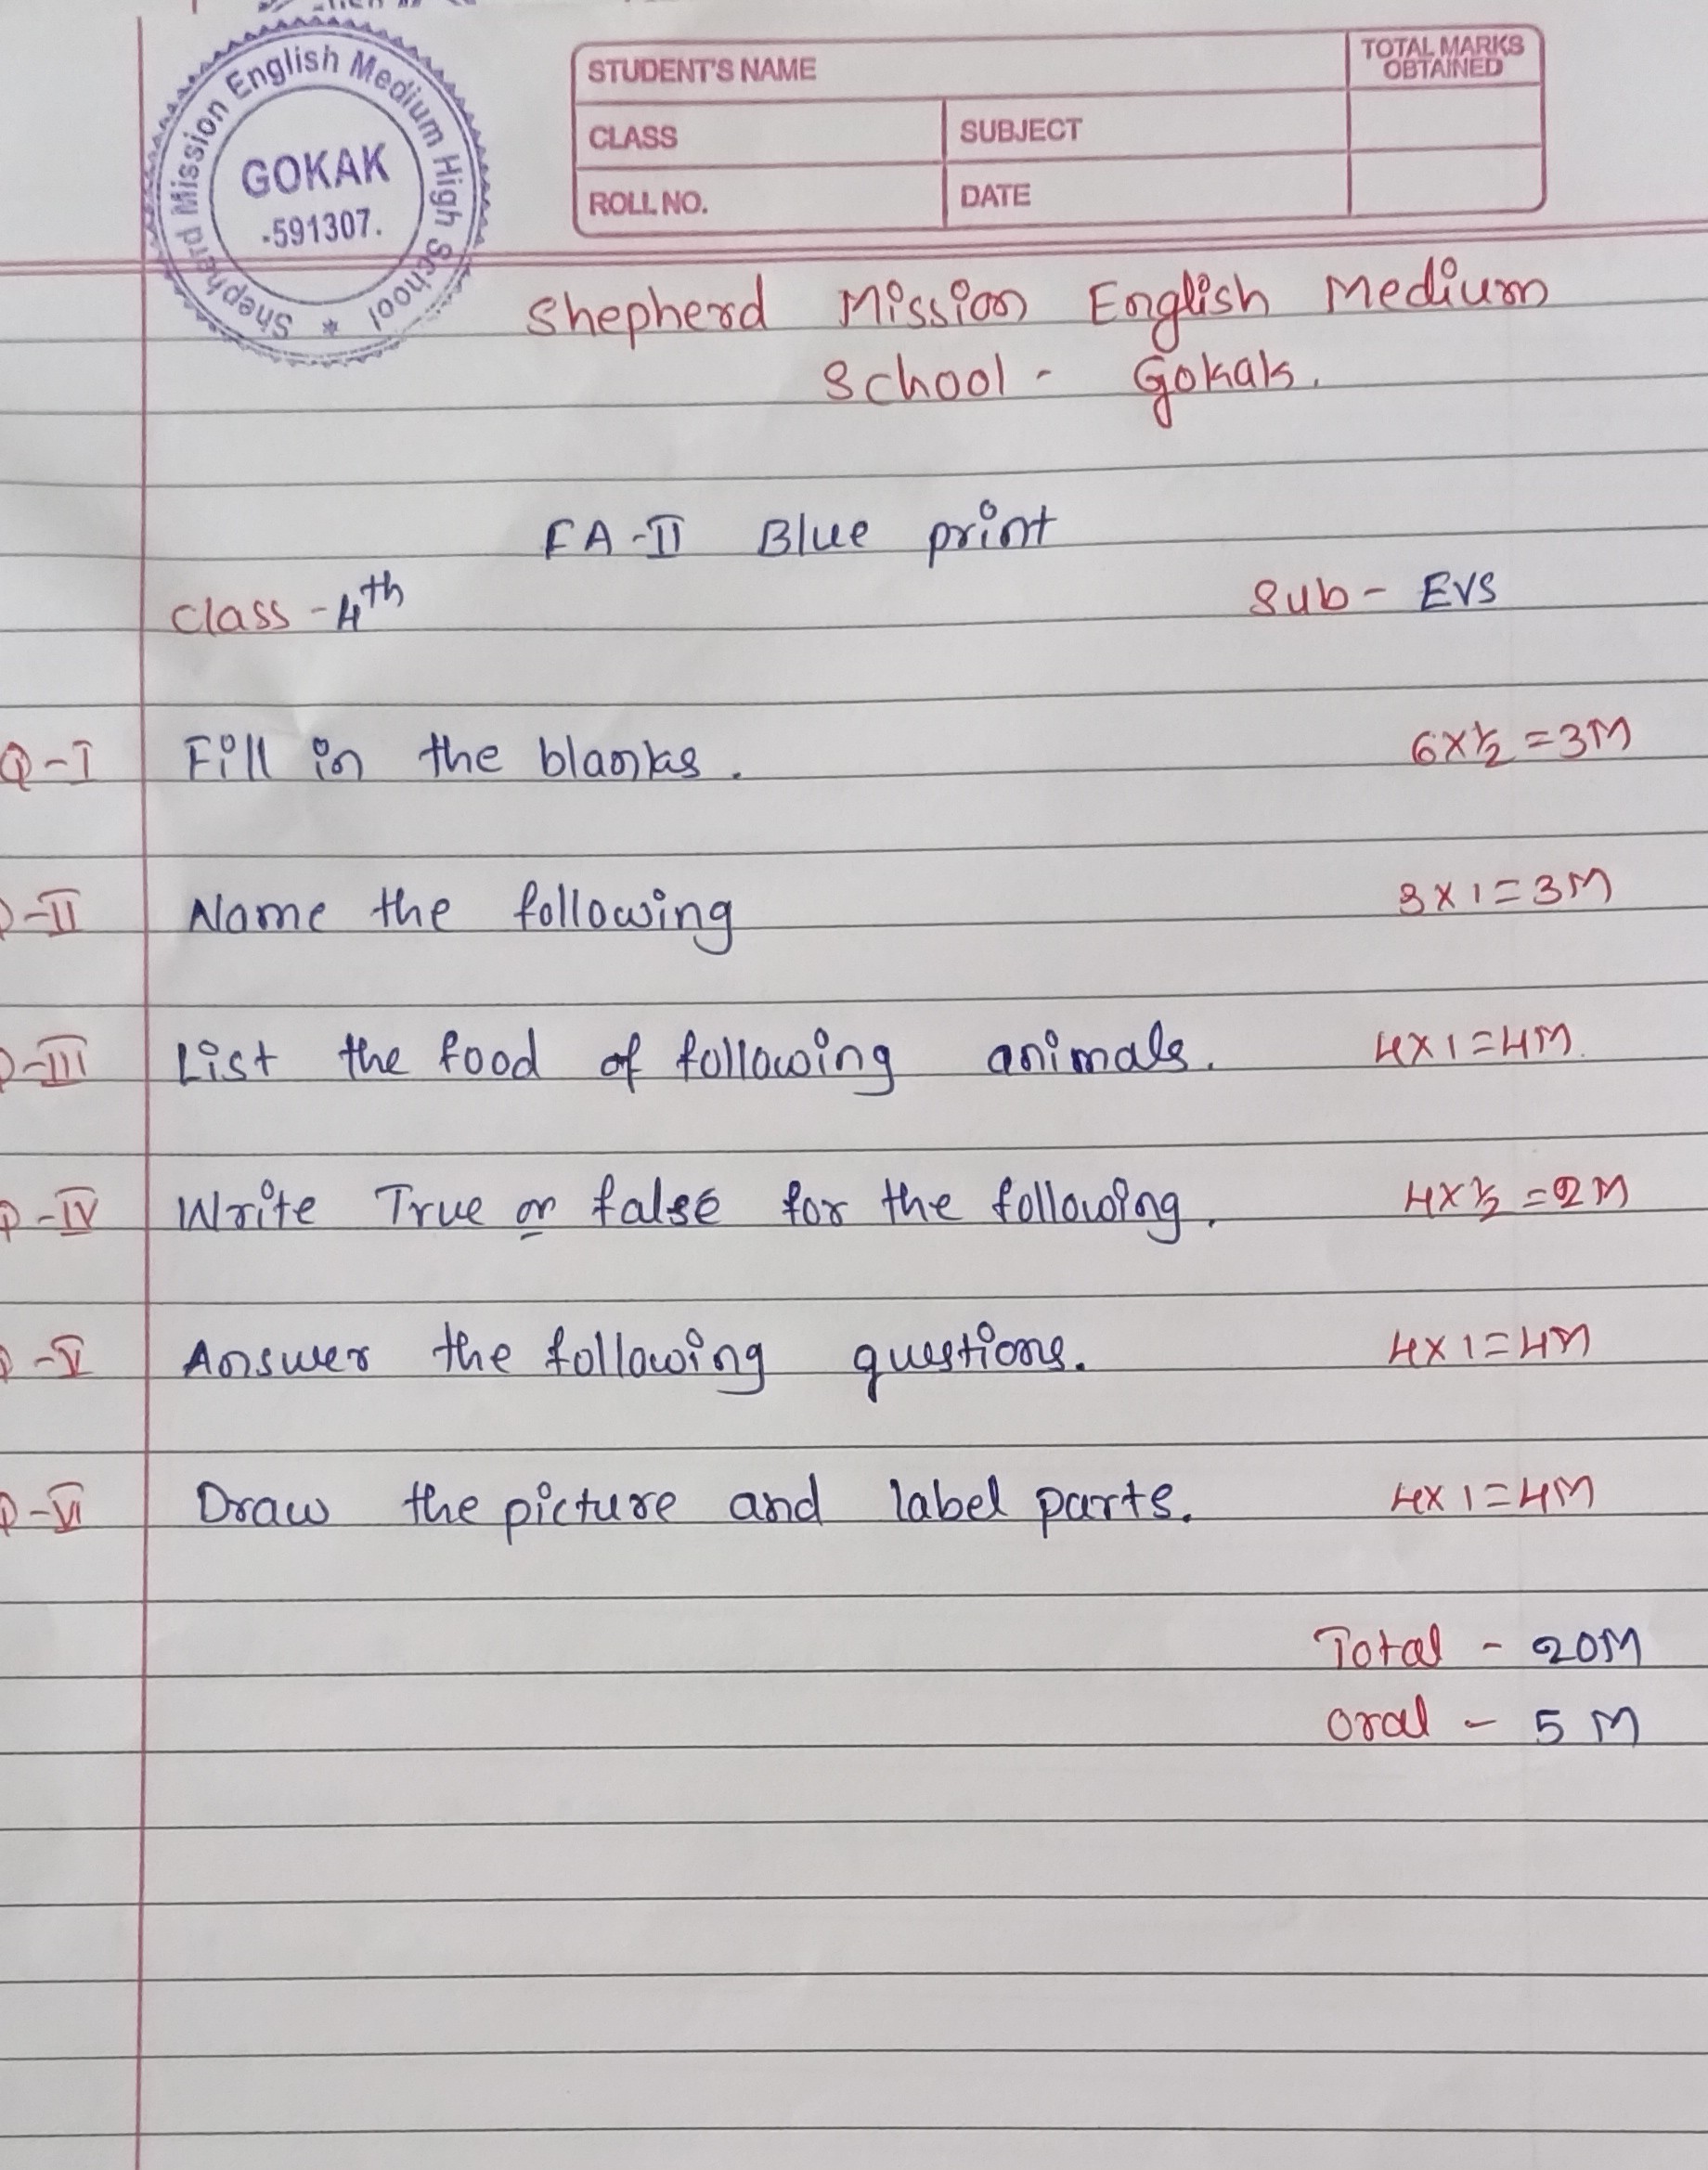 Shepherd Mission English Medium High School *
GOKAK
-591307.
STUDENT'S NAME
TOTAL MARKS OBTAINED
CLASS
SUBJECT
ROLL NO.
DATE
Shepherd Mission English Medium
School - Gokak.
FA-II Blue print
Class - 4th Sub - EVS
Q-I Fill in the blanks. 6x½=3M
Q-II Name the following 3x1=3M
Q-III List the food of following animals. 4x1=4M.
Q-IV Write True or false for the following. 4x½=2M
Q-V Answer the following questions. 4x1=4M
Q-VI Draw the picture and label parts. 4x1=4M
Total - 20M
Oral - 5M